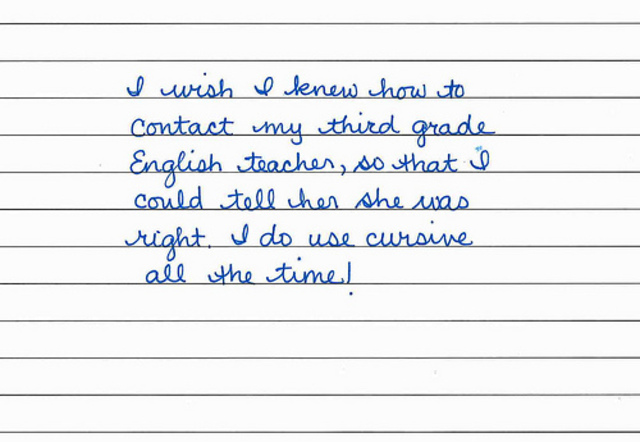 I wish I knew how to
contact my third grade
English teacher, so that I
could tell her she was
right. I do use cursive
all the time!